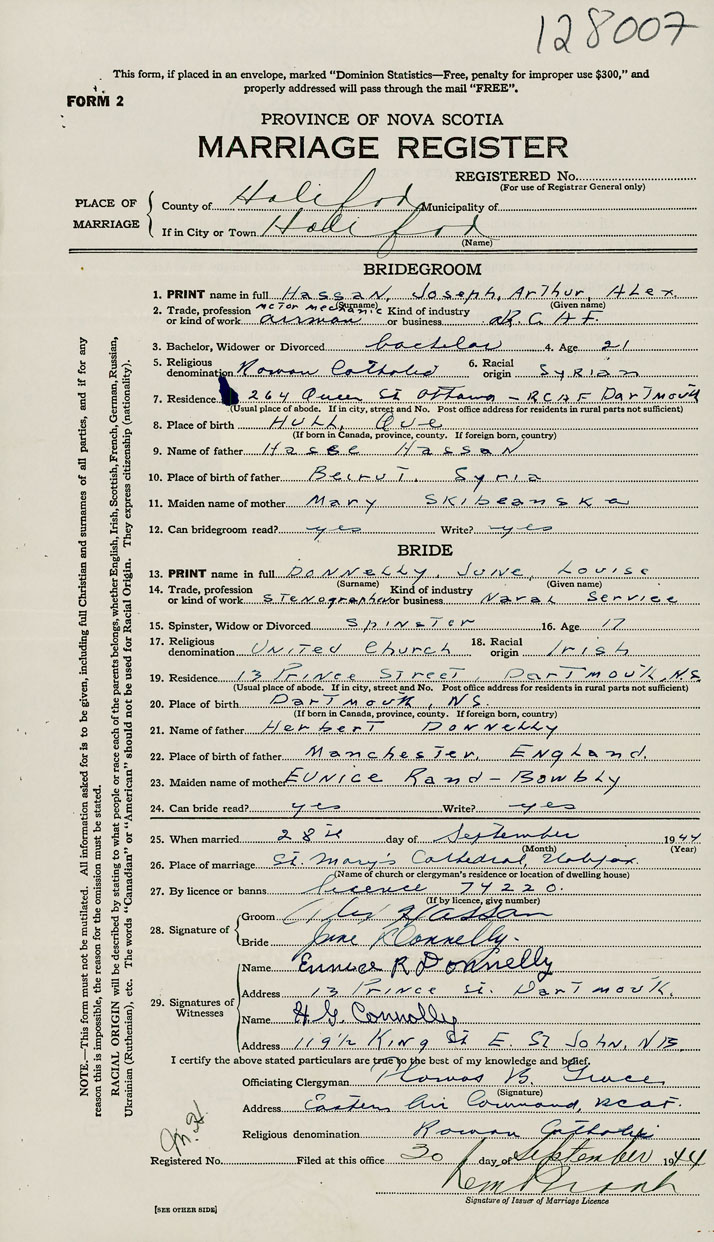 128007
This form, if placed in an envelope, marked "Dominion Statistics—Free, penalty for improper use $300," and
properly addressed will pass through the mail "FREE".
FORM 2
PROVINCE OF NOVA SCOTIA
MARRIAGE REGISTER
REGISTERED No.
(For use of Registrar General only)
PLACE OF MARRIAGE
County of Halifax Municipality of
If in City or Town Halifax
(Name)
BRIDEGROOM
1. PRINT name in full Hassan, Joseph, Arthur, Alex.
(Surname) (Given name)
motor mechanic
2. Trade, profession or kind of work airman Kind of industry or business R.C.A.F.
3. Bachelor, Widower or Divorced bachelor 4. Age 21
5. Religious denomination Roman Catholic 6. Racial origin Syrian
7. Residence 264 Queen St Ottawa - RCAF Dartmouth
(Usual place of abode. If in city, street and No. Post office address for residents in rural parts not sufficient)
8. Place of birth Hull, Que
(If born in Canada, province, county. If foreign born, country)
9. Name of father Hasec Hassan
10. Place of birth of father Beirut, Syria
11. Maiden name of mother Mary Skibeanska
12. Can bridegroom read? yes Write? yes
BRIDE
13. PRINT name in full Donnelly, June, Louise
(Surname) (Given name)
14. Trade, profession or kind of work stenographer Kind of industry or business Naval Service
15. Spinster, Widow or Divorced Spinster 16. Age 17
17. Religious denomination United Church 18. Racial origin Irish
19. Residence 13 Prince Street, Dartmouth, N.S.
(Usual place of abode. If in city, street and No. Post office address for residents in rural parts not sufficient)
20. Place of birth Dartmouth, N.S.
(If born in Canada, province, county. If foreign born, country)
21. Name of father Herbert Donnelly
22. Place of birth of father Manchester, England.
23. Maiden name of mother Eunice Rand-Bowbly
24. Can bride read? yes Write? yes
25. When married 28th day of September 1944
(Month) (Year)
26. Place of marriage St. Mary's Cathedral, Halifax.
(Name of church or clergyman's residence or location of dwelling house)
27. By licence or banns licence 74220.
(If by licence, give number)
28. Signature of
Groom Alex Hassan
Bride June Donnelly.
29. Signatures of Witnesses
Name Eunice R Donnelly
Address 13 Prince St. Dartmouth.
Name H.G. Connolly
Address 119½ King St E. St John, N.B.
I certify the above stated particulars are true to the best of my knowledge and belief.
Officiating Clergyman Thomas B. Grace
(Signature)
Address Eastern Air Command, RCAF.
Religious denomination Roman Catholic
Registered No. Filed at this office 30 day of September 1944
Signature of Issuer of Marriage Licence
[SEE OTHER SIDE]
NOTE.—This form must not be mutilated. All information asked for is to be given, including full Christian and surnames of all parties, and if for any
reason this is impossible, the reason for the omission must be stated.
RACIAL ORIGIN will be described by stating to what people or race each of the parents belongs, whether English, Irish, Scottish, French, German, Russian,
Ukrainian (Ruthenian), etc. The words "Canadian" or "American" should not be used for Racial Origin. They express citizenship (nationality).